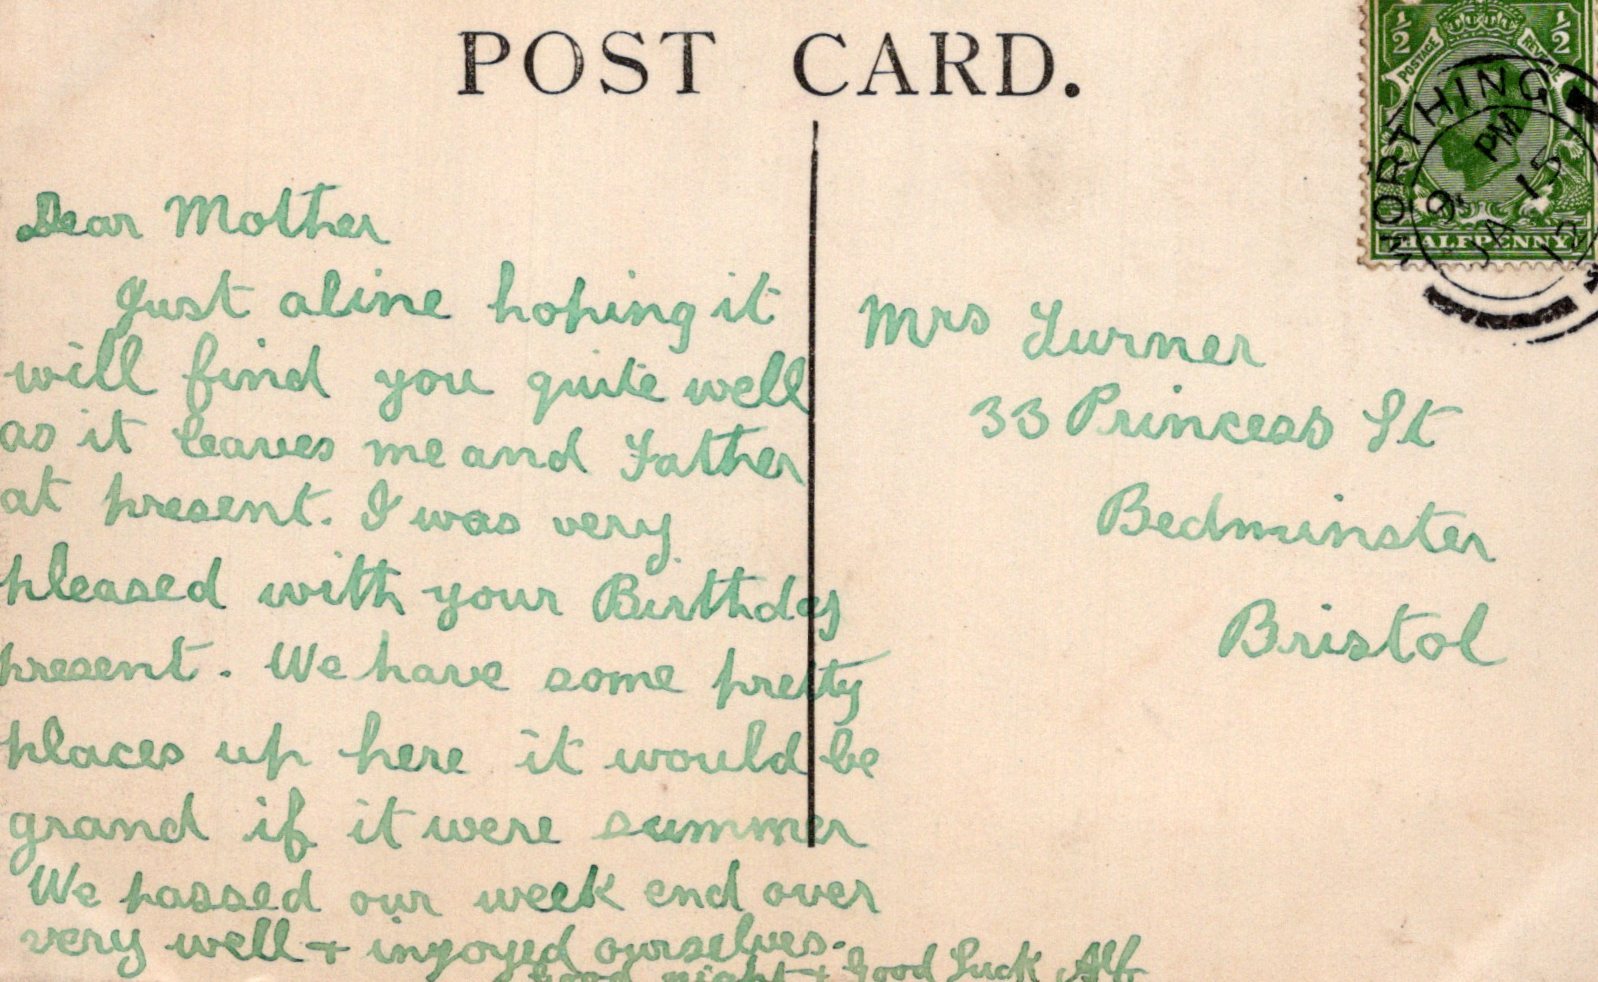 POST CARD.
½ ½
POSTAGE REVENUE
WORTHING
PM
9. 15
JA 13
HALFPENNY
Dear Mother
Just aline hoping it
will find you quite well
as it leaves me and Father
at present. I was very
pleased with your Birthday
present. We have some pretty
places up here it would be
grand if it were summer
We passed our week end over
very well + injoyed ourselves.
Good night + Good Luck Alf
Mrs Turner
33 Princess St
Bedminster
Bristol